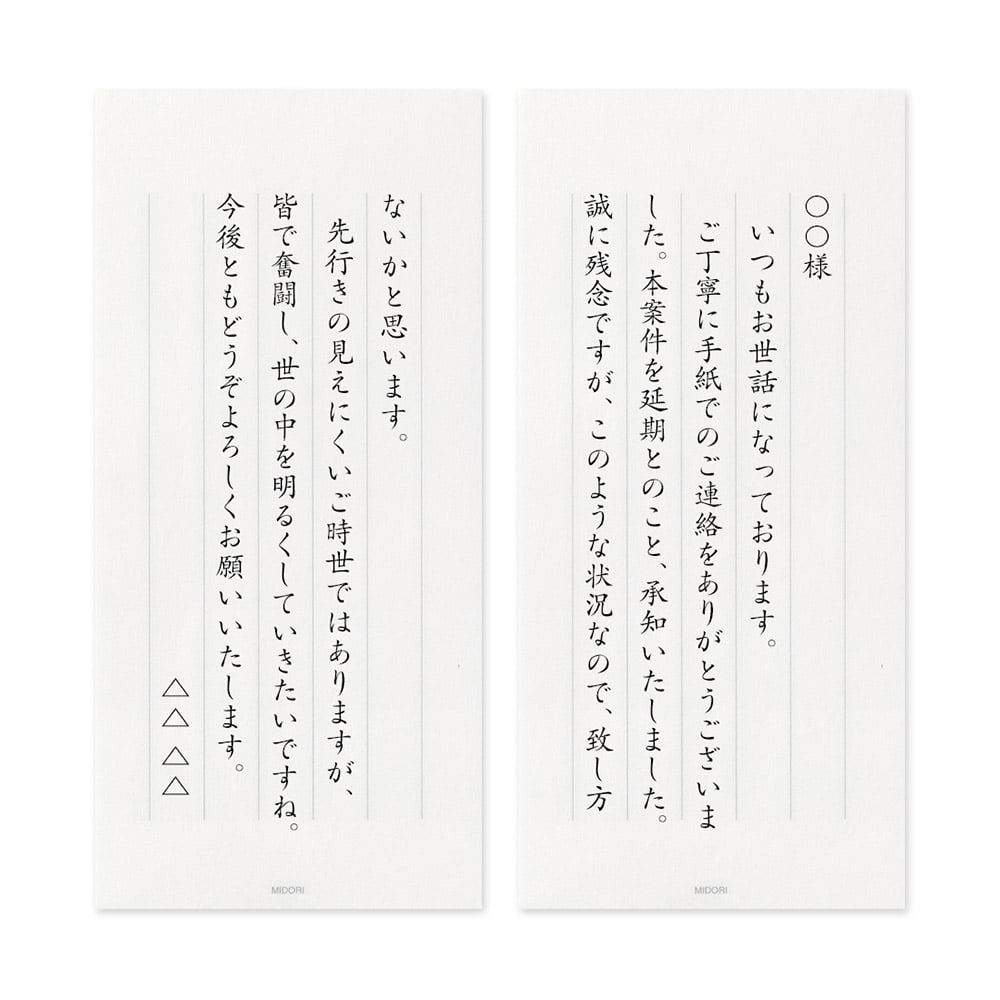 〇〇様
いつもお世話になっております。
ご丁寧に手紙でのご連絡をありがとうございま
した。本案件を延期とのこと、承知いたしました。
誠に残念ですが、このような状況なので、致し方
MIDORI
ないかと思います。
先行きの見えにくいご時世ではありますが、
皆で奮闘し、世の中を明るくしていきたいですね。
今後ともどうぞよろしくお願いいたします。
△△△△
MIDORI